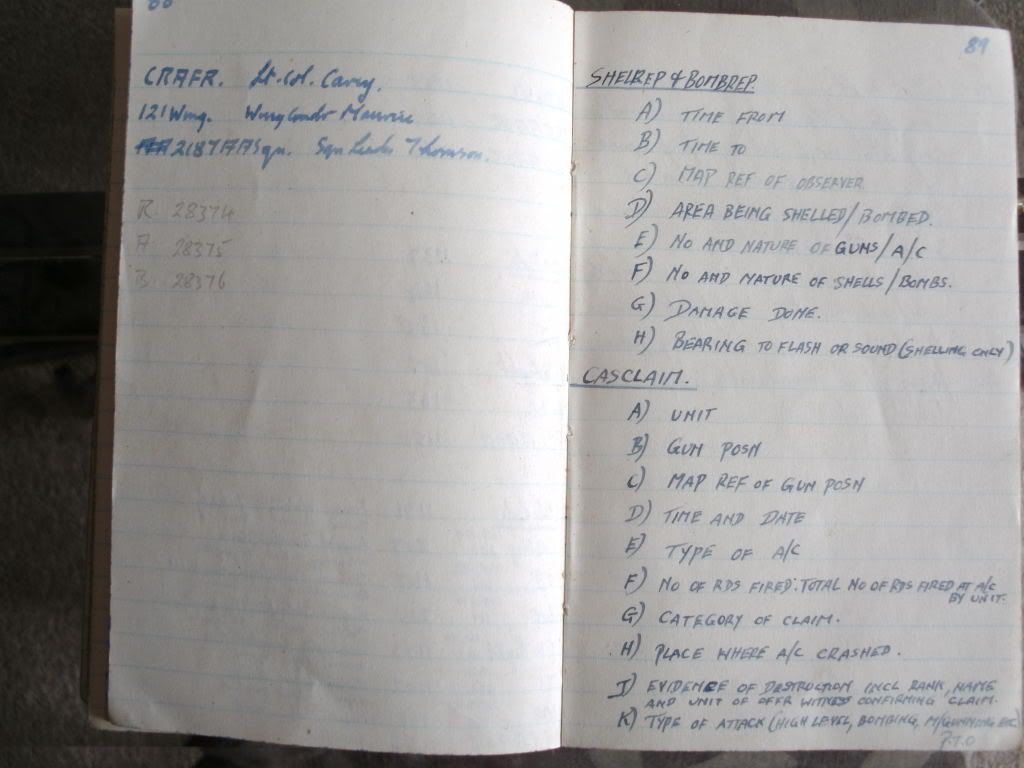 88
CRAFR. Lt. Col. Carey.
121 Wing. Wing Comdr Maurice
2187 AA Sqn. Sqn Leader Thomson.
R. 28374
A. 28375
B. 28376
89
SHELREP & BOMBREP.
A) TIME FROM
B) TIME TO
C) MAP REF OF OBSERVER
D) AREA BEING SHELLED/BOMBED.
E) NO AND NATURE OF GUNS/A/C
F) NO AND NATURE OF SHELLS/BOMBS.
G) DAMAGE DONE.
H) BEARING TO FLASH OR SOUND (SHELLING ONLY)
CASCLAIM.
A) UNIT
B) GUN POSN
C) MAP REF OF GUN POSN
D) TIME AND DATE
E) TYPE OF A/C
F) NO OF RDS FIRED: TOTAL NO OF RDS FIRED AT A/C
BY UNIT.
G) CATEGORY OF CLAIM.
H) PLACE WHERE A/C CRASHED.
J) EVIDENCE OF DESTRUCTION INCL RANK, NAME
AND UNIT OF OFFR WITNESS CONFIRMING CLAIM.
K) TYPE OF ATTACK (HIGH LEVEL, BOMBING, M/GUNNING ETC)
P.T.O